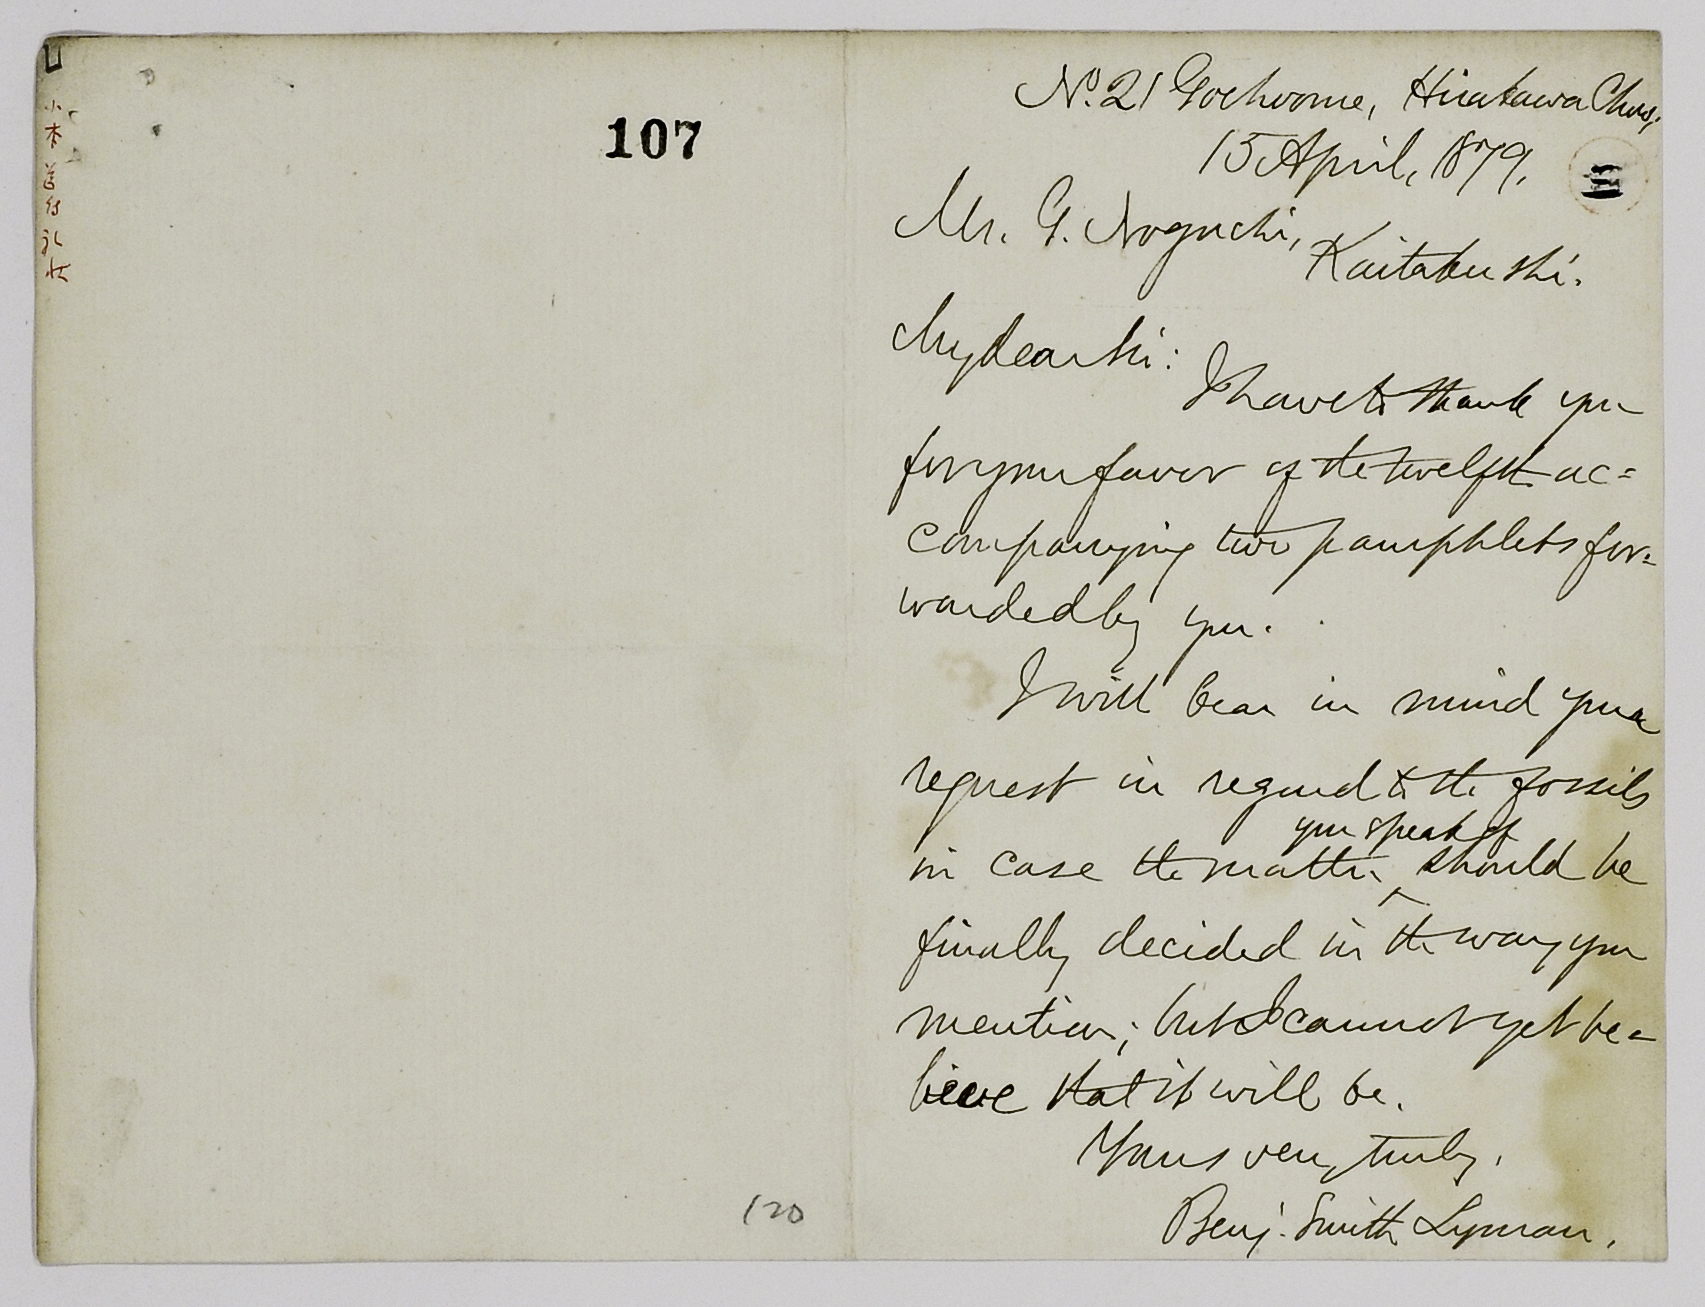 107
120
No. 21 Gochome, Hirakawa Cho,
15 April, 1879.
Mr. G. Noguchi,
Kaitakushi.
My dear Sir:
I have to thank you
for your favor of the twelfth ac=
companying two pamphlets for=
warded by you.
I will bear in mind your
request in regard to the fossils
you speak of
in case the matter ^ should be
finally decided in the way you
mention; but I cannot yet be=
lieve that it will be.
Yours very truly,
Benj. Smith Lyman.